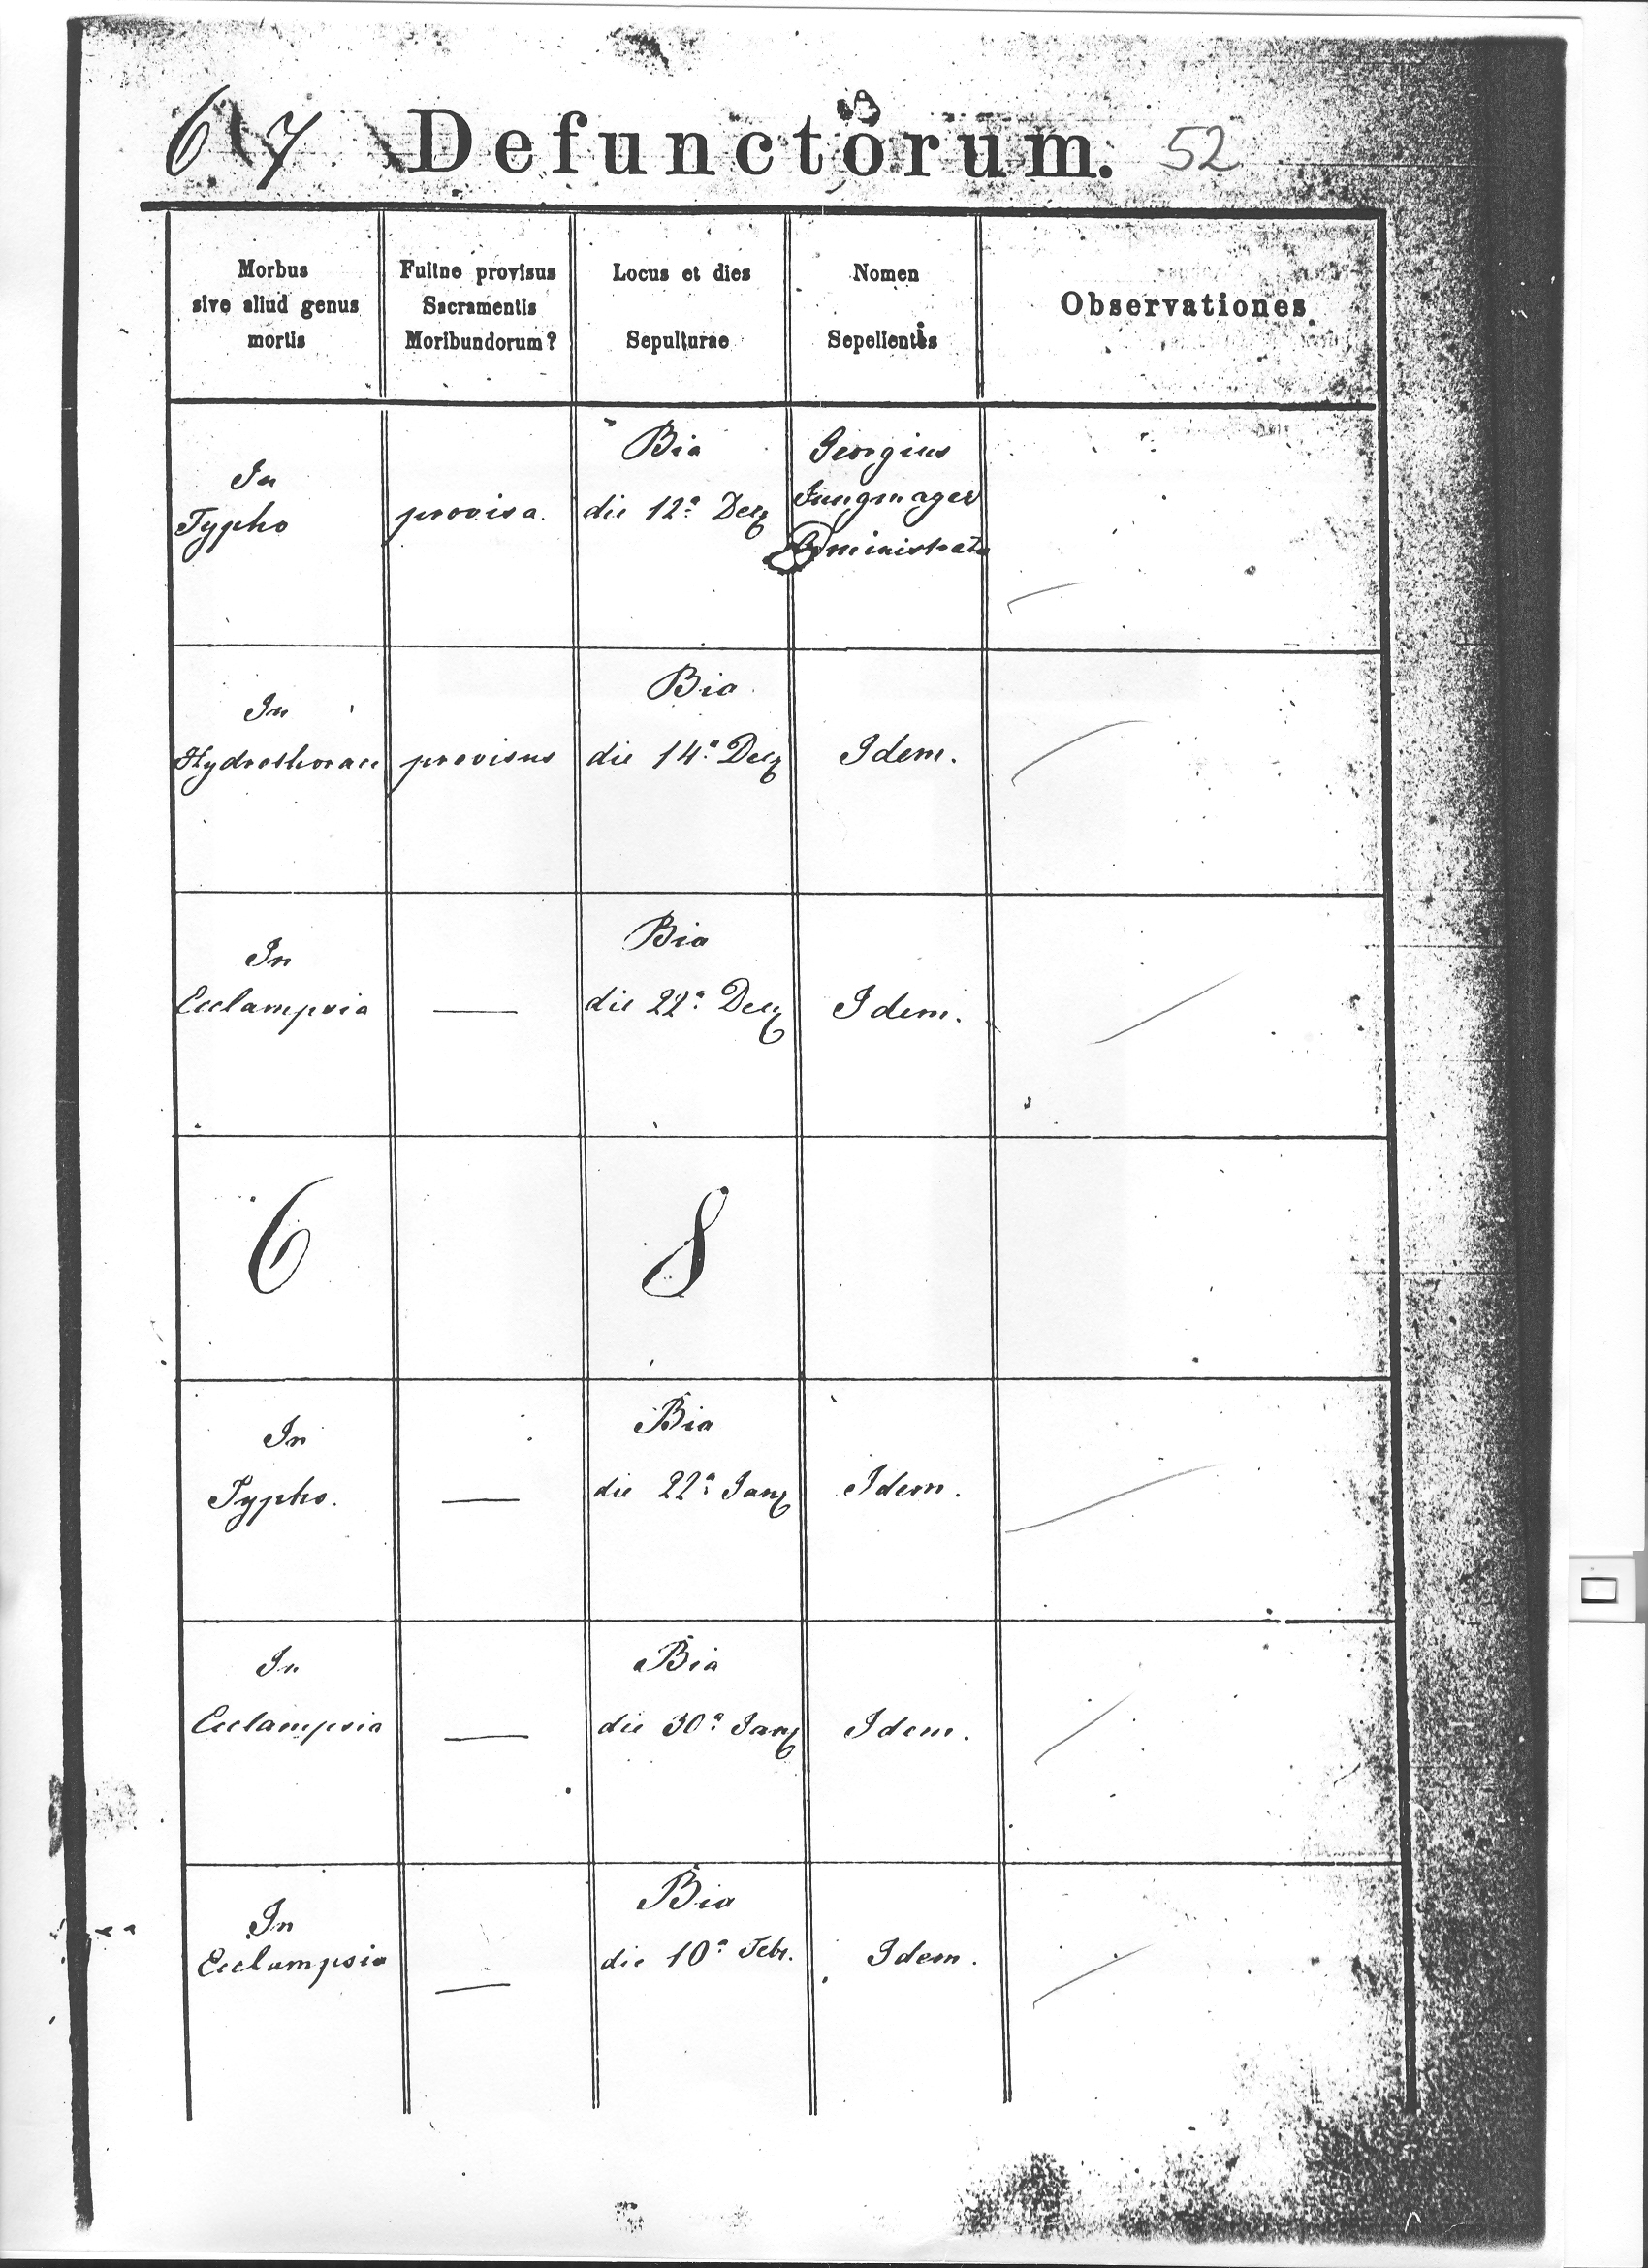 67 Defunctorum. 52
Morbus
sive aliud genus
mortis
Fuitne provisus
Sacramentis
Moribundorum?
Locus et dies
Sepulturae
Nomen
Sepelientis
Observationes
In
Typho
provisa.
Bia
die 12ª Dec
Georgius
Jungmayer
Administrato
In
Hydrothorace
provisus
Bia
die 14ª Dec
Idem.
In
Ecclampsia
—
Bia
die 22ª Dec
Idem.
6 8
In
Typho.
—
Bia
die 22ª Jan
Idem.
In
Ecclampsia
—
Bia
die 30ª Jan
Idem.
In
Ecclampsia
—
Bia
die 10ª Febr.
Idem.